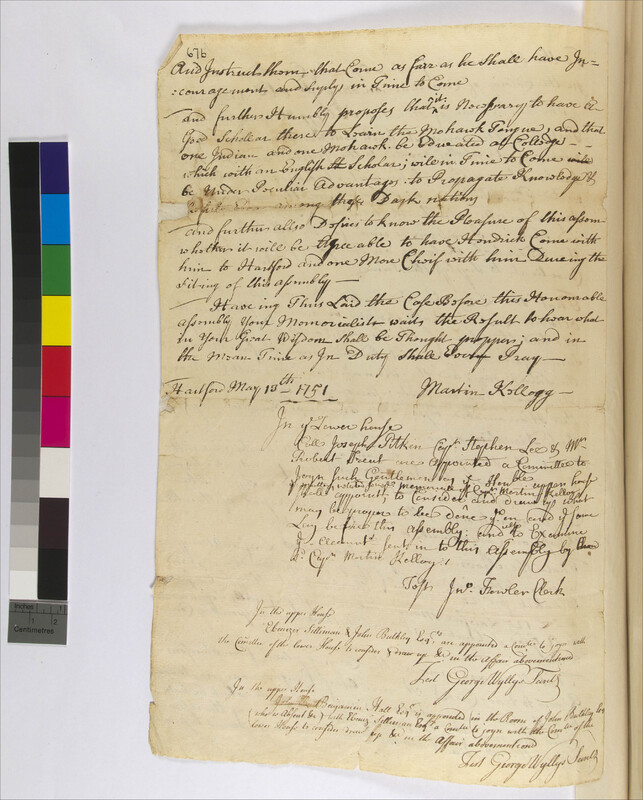 676
And Instruct them that Come as farr as he Shall have In=
:couragement and Suplys in Time to Come
and further Humbly proposes that it is Necessary to have a
Good Schollar there to Learn the Mohawk Tongue, and that
one Indian and one Mohawk be Educated at Colledge
which with an English Schollar; will in Time to Come
be Under Peculiar Advantages to Propagate Knowledge &
among those Dark nations
and further allso Desires to know the Pleasure of this assem
whether it will be Agreeable to have Hendrick Come with
him to Hartford and one More Cheif with him Dureing the
Sitting of this assembly
Haveing Thus Laid the Case Before this Honourable
assembly Your Memorialist waits the Result to hear what
in Your Great Wisdom Shall be Thought propper; and in
the Mean Time as In Duty Shall Ever Pray
Hartford May 18th 1751
Martin Kellogg
In ye Lower house
Coll Joseph Pitkin Capt Stephen Lee & Mr
Robert Treat are appointed a Committee to
Joyn such Gentlemen as ye Honble upper house
memorial of Capt Martin Kellogg
Shall appoint, to Consider and draw up what
may be proper to be done and
Lay before this Assembly: and also to Examine
ye Accompt sent in to this Assembly by
sd Capt Martin Kellogg.
Test Jno. Fowler Clerk
In the upper House
Ebenezer Silliman & John Bulkley Esqrs are appointed a Comtee to joyn with
the Comittee of the Lower House to consider & draw up &c in the Affair abovementioned
Test George Wyllys Secret
In the upper House
Benjamin Hall Esqr is appointed in the Room of John Bulkley Esq
(who is Absent &c) with Ebenezr Silliman Esqr a Comtee to joyn with the Comtee of the
Lower House to consider draw up &c in the Affair abovementiond
Test George Wyllys Secret
Inches
1
2
Centimetres